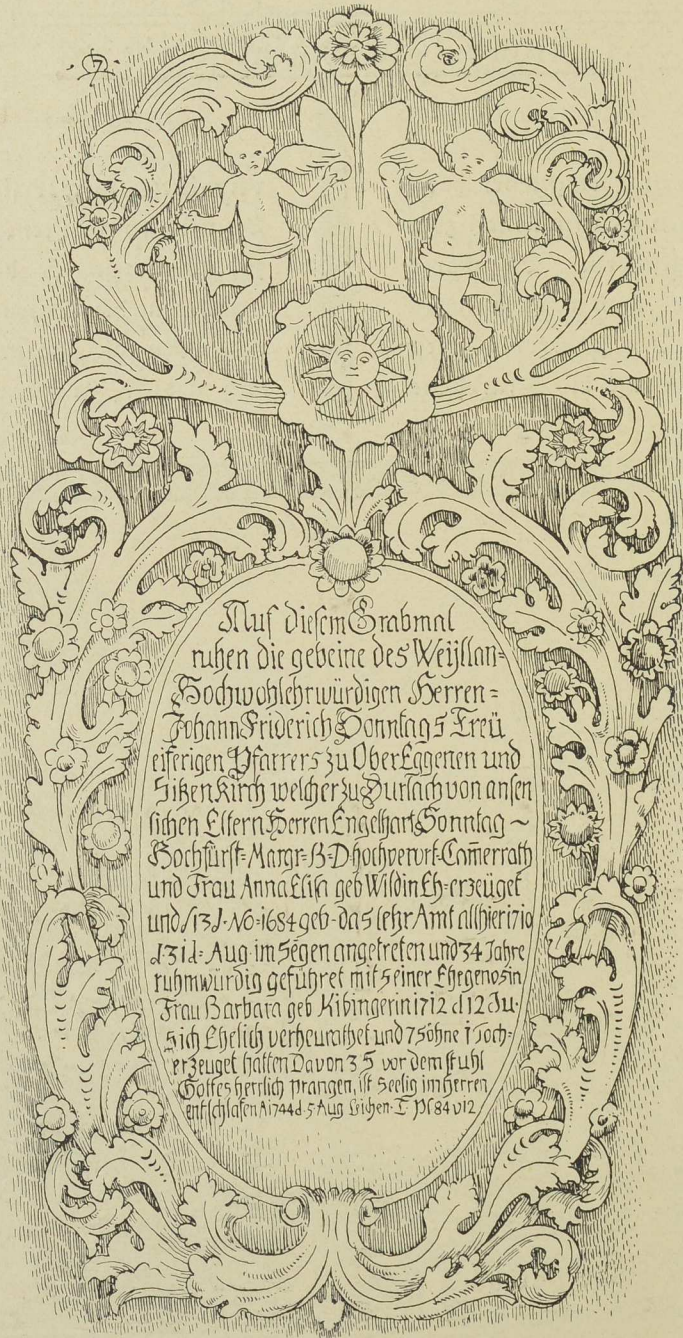 Auf diesem Grabmal
ruhen die gebeine des Weijllan=
Hochwohlehrwürdigen Herren=
Johann Friderich Sonntags Treü
eiferigen Pfarrers zu Ober Eggenen und
Sitzen Kirch welcher zu Durlach von ansen
lichen Eltern Herren Engelhart Sonntag ~
Hochfürst-Margr-B-D-hochverort-Cam̄errath
und Frau Anna Elisa geb Wildin Eh=erzeüget
und 13 J-No-1684 geb-das lehr Amt allhier 1710
d-31 d-Aug im Segen angetreten und 34 Jahre
ruhmwürdig geführet mit seiner Ehegenosin
Frau Barbara geb Kibingerin 1712 d 12 Ju-
sich Ehelich verheurathet und 7 Söhne 1 Toch-
erzeuget hatten Davon 3 S vor dem stuhl
Gottes herrlich prangen, ist Seelig im Herren
entschlafen A 1744 d. 5 Aug Leichen-T Ps 84 v 12